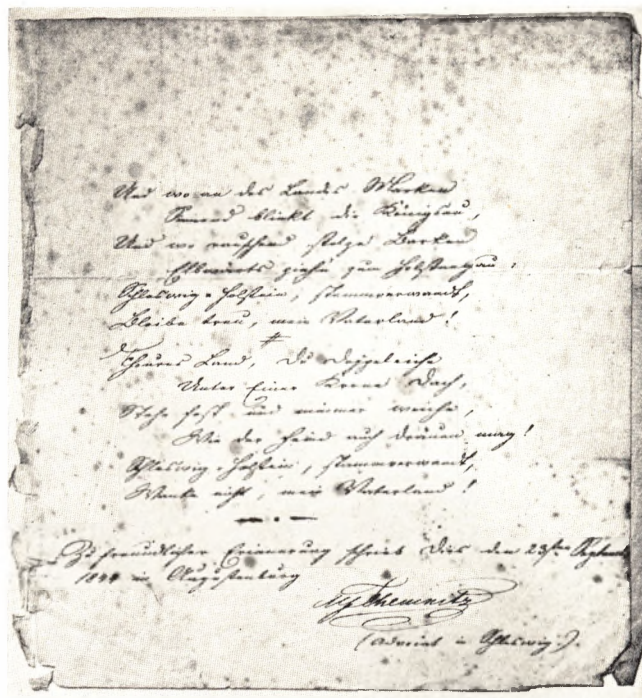 Und wo an des Landes Marken
Sinnend blinkt die Königsau,
Und wo rauschend stolze Barken
Elbwärts ziehn zum Holstengau:
Schleswig-Holstein, stammverwandt,
Bleibe treu, mein Vaterland!
#
Theures Land, Du Doppeleiche
Unter Einer Krone Dach,
Stehe fest und nimmer weiche,
Wie der Feind auch dräuen mag!
Schleswig-Holstein, stammverwandt,
Wanke nicht, mein Vaterland!
Zu freundlicher Erinnerung schrieb dies den 23sten September
1844 in Augustenburg
MFChemnitz
(Advocat in Schleswig.)